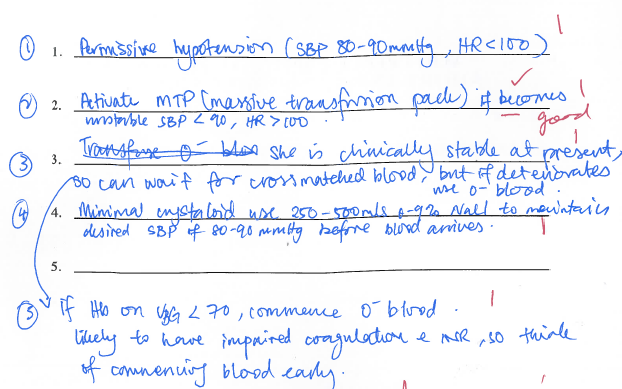 ① 1. Permissive hypotension (SBP 80-90mmHg, HR<100)
1
② 2. Activate MTP (massive transfusion pack) if becomes 1
unstable SBP < 90, HR > 100. good
③ 3. Transfuse O⁻ she is clinically stable at present, 1
so can wait for crossmatched blood, but if deteriorates
use O- blood.
④ 4. Minimal crystaloid use 250-500mls 0.9% NaCl to maintain
desired SBP of 80-90 mmHg before blood arrives. 1
5.
⑤ If Hb on VBG < 70, commence O⁻ blood. 1
likely to have impaired coagulation c̄ INR, so think
of commencing blood early.